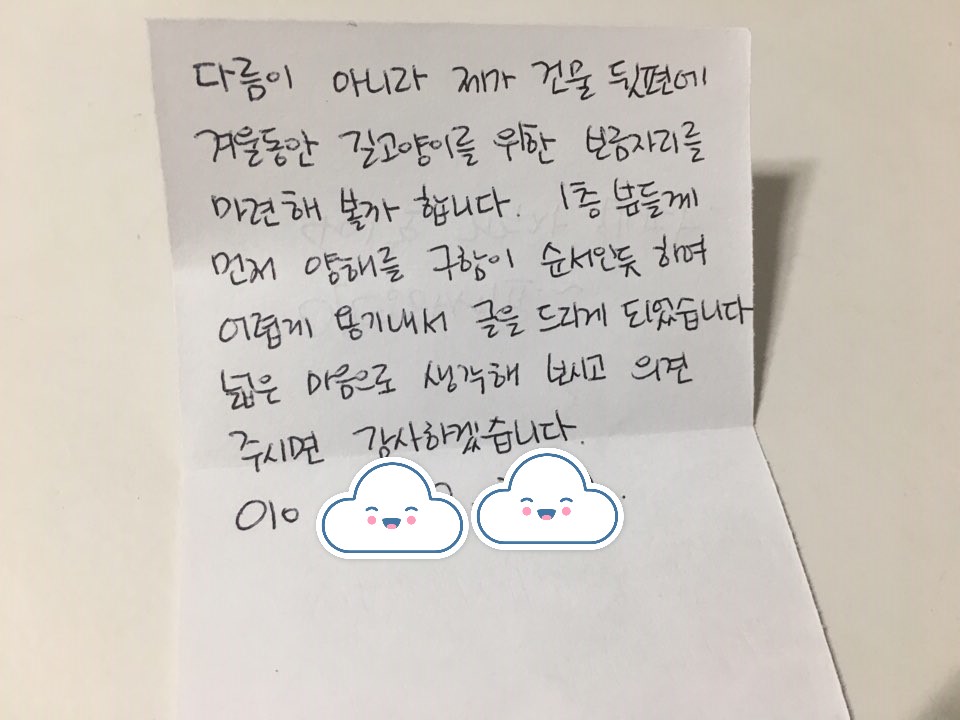 다름이 아니라 제가 건물 뒷편에
겨울동안 길고양이를 위한 보금자리를
마련해 볼까 합니다. 1층 분들께
먼저 양해를 구함이 순서인듯 하여
어렵게 용기내서 글을 드리게 되었습니다
넓은 마음으로 생각해 보시고 의견
주시면 감사하겠습니다.
010